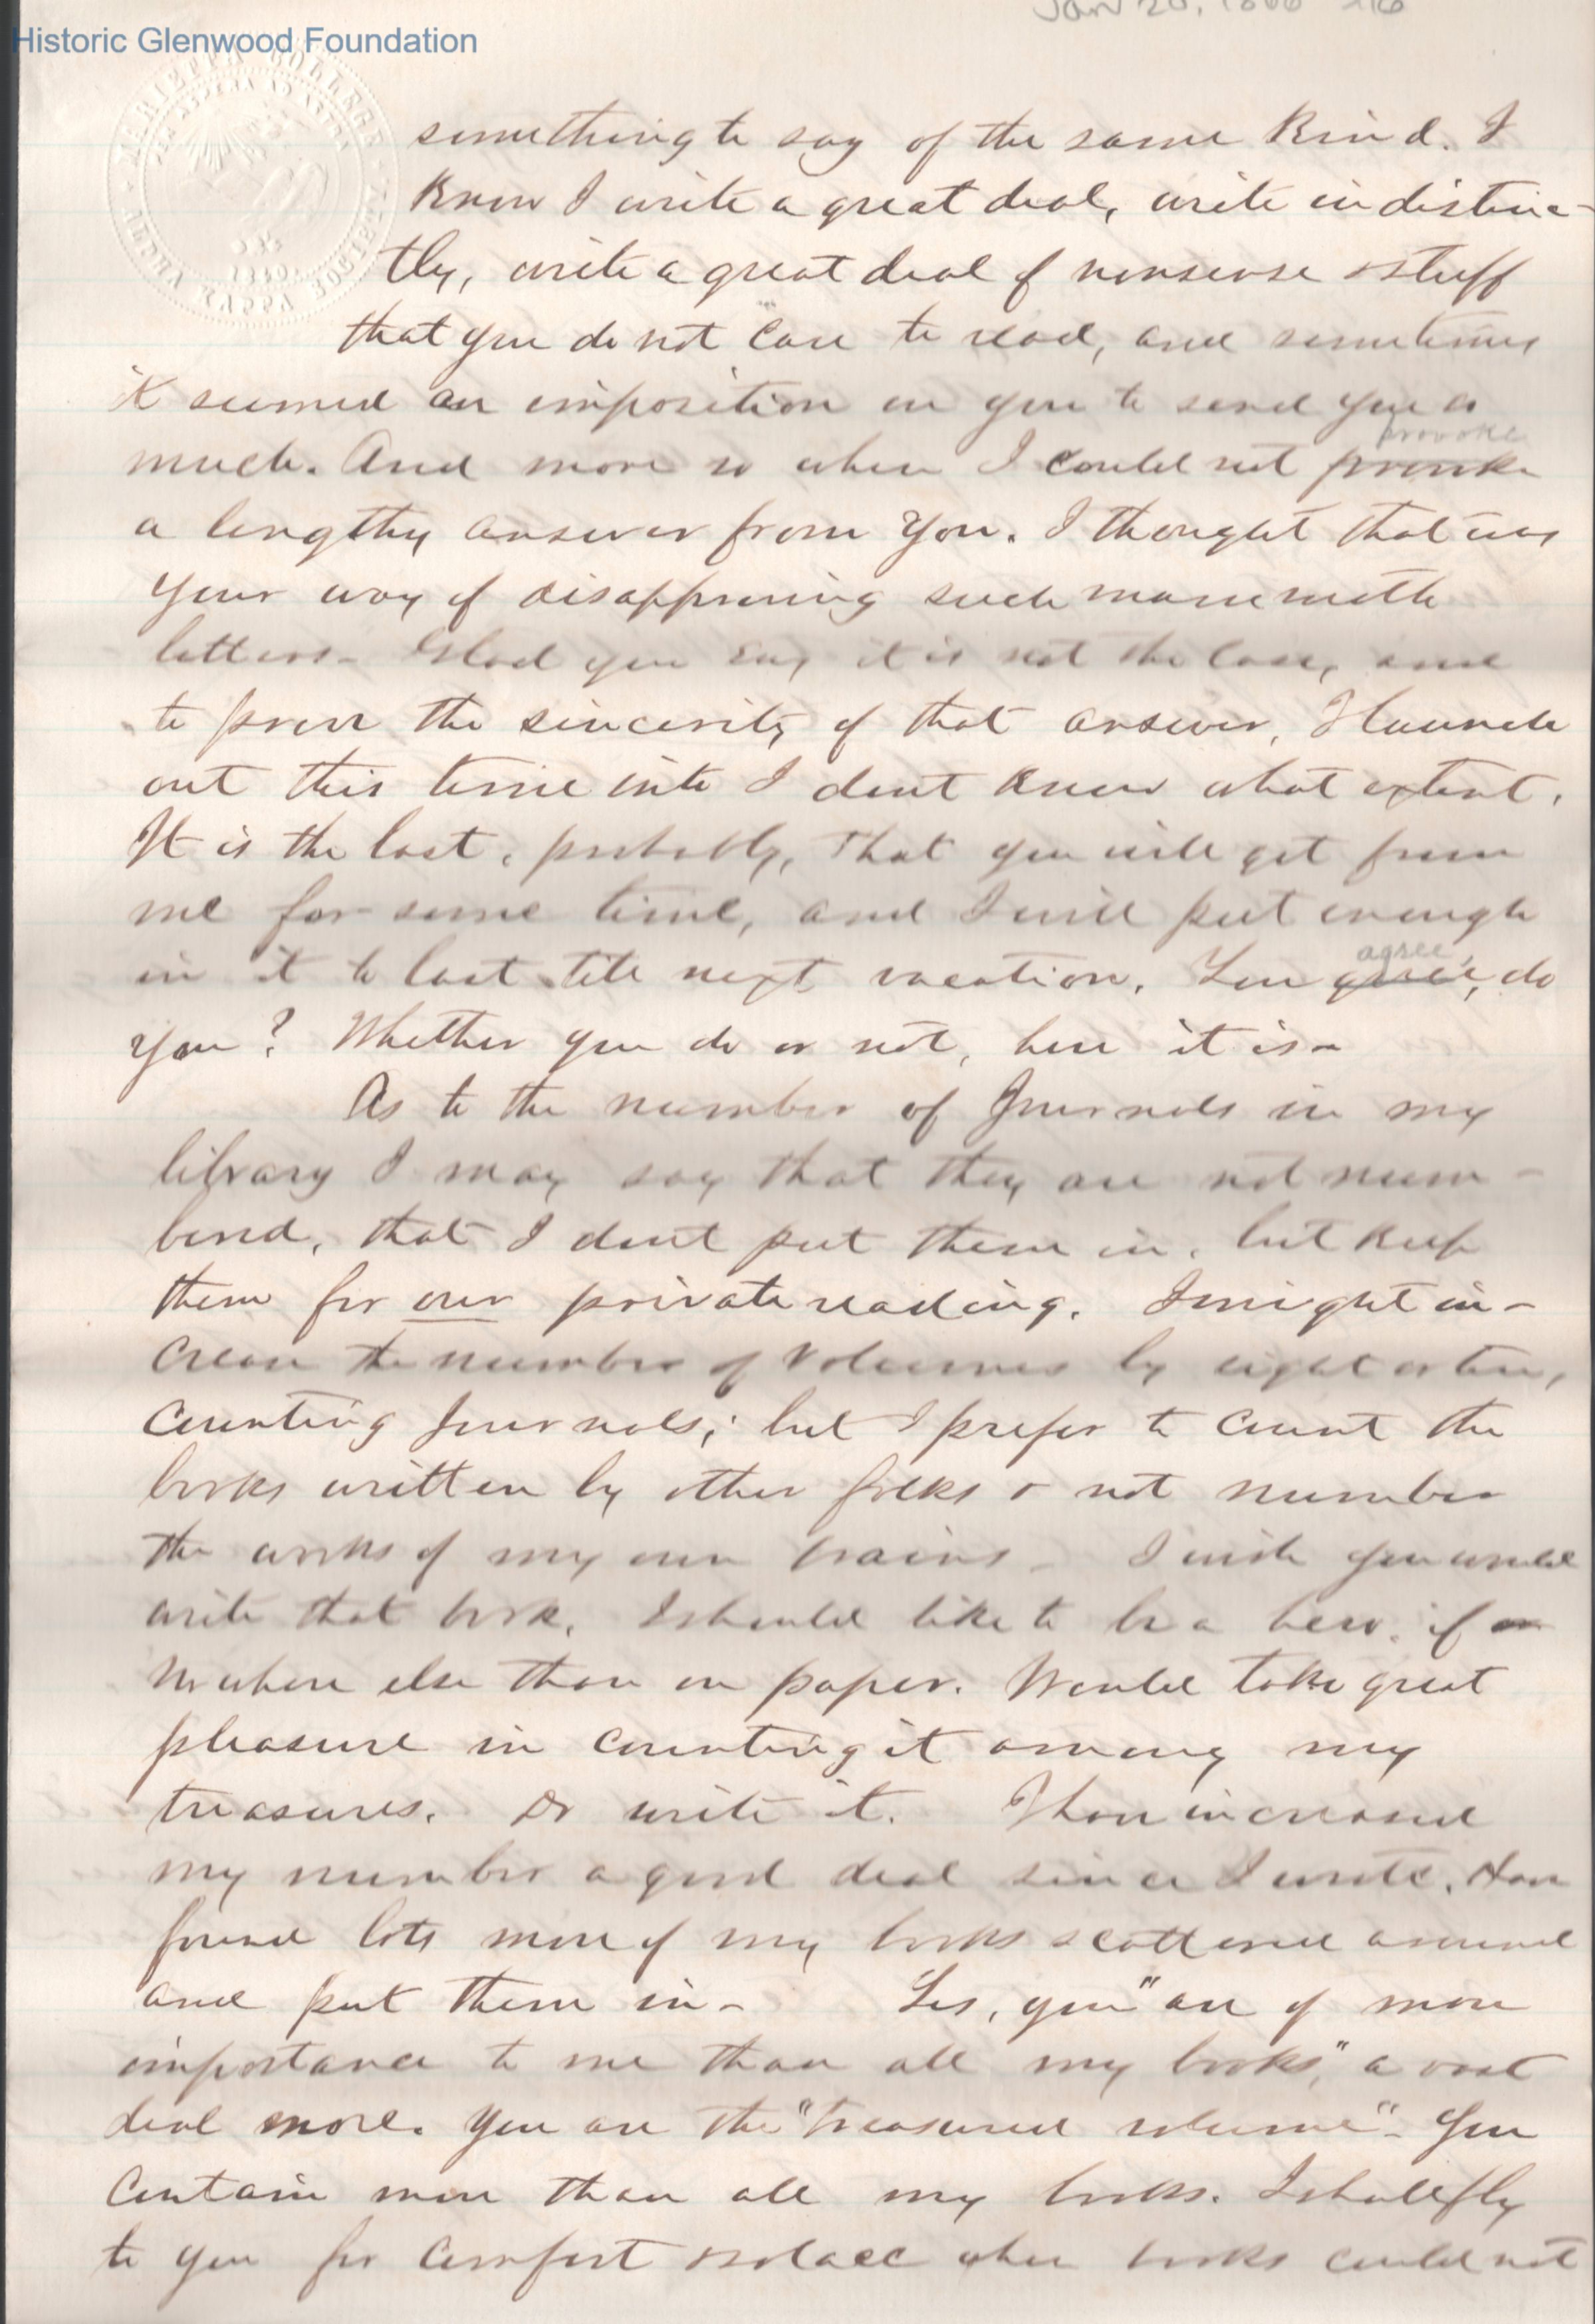 Jan 20, 1866
Historic Glenwood Foundation
MARIETTA COLLEGE
ALPHA KAPPA SOCIETY
1840
something to say of the same kind. I
know I write a great deal, write indistinc-
tly, write a great deal of nonsense & stuff
that you do not care to read, and sometimes
it seemed an imposition on you to send you so
much. And more so when I could not provoke
provoke
a lengthy answer from you. I thought that was
your way of disapproving such mammoth
letters - Glad you say it is not the case, and
to prove the sincerity of that answer, I launch
out this time into I dont know what extent.
It is the last, probably, that you will get from
me for some time, and I will put enough
in it to last till next vacation. You agree, do
agree,
you? Whether you do or not, here it is -
As to the number of Journals in my
library I may say that they are not num-
bered, that I dont put them in, but keep
them for our private reading. I might in-
crease the number of volumes by eight or ten,
counting Journals; but I prefer to count the
books written by other folks & not number
the works of my own brains - I wish you would
write that book. I should like to be a hero, if
nowhere else than on paper. Would take great
pleasure in counting it among my
treasures. Do write it. I have increased
my number a good deal since I wrote. Have
found lots more of my books scattered around
and put them in - Yes, you "are of more
importance to me than all my books," a vast
deal more. You are the "treasured volume" - You
contain more than all my books. I shall fly
to you for comfort & solace when books could not